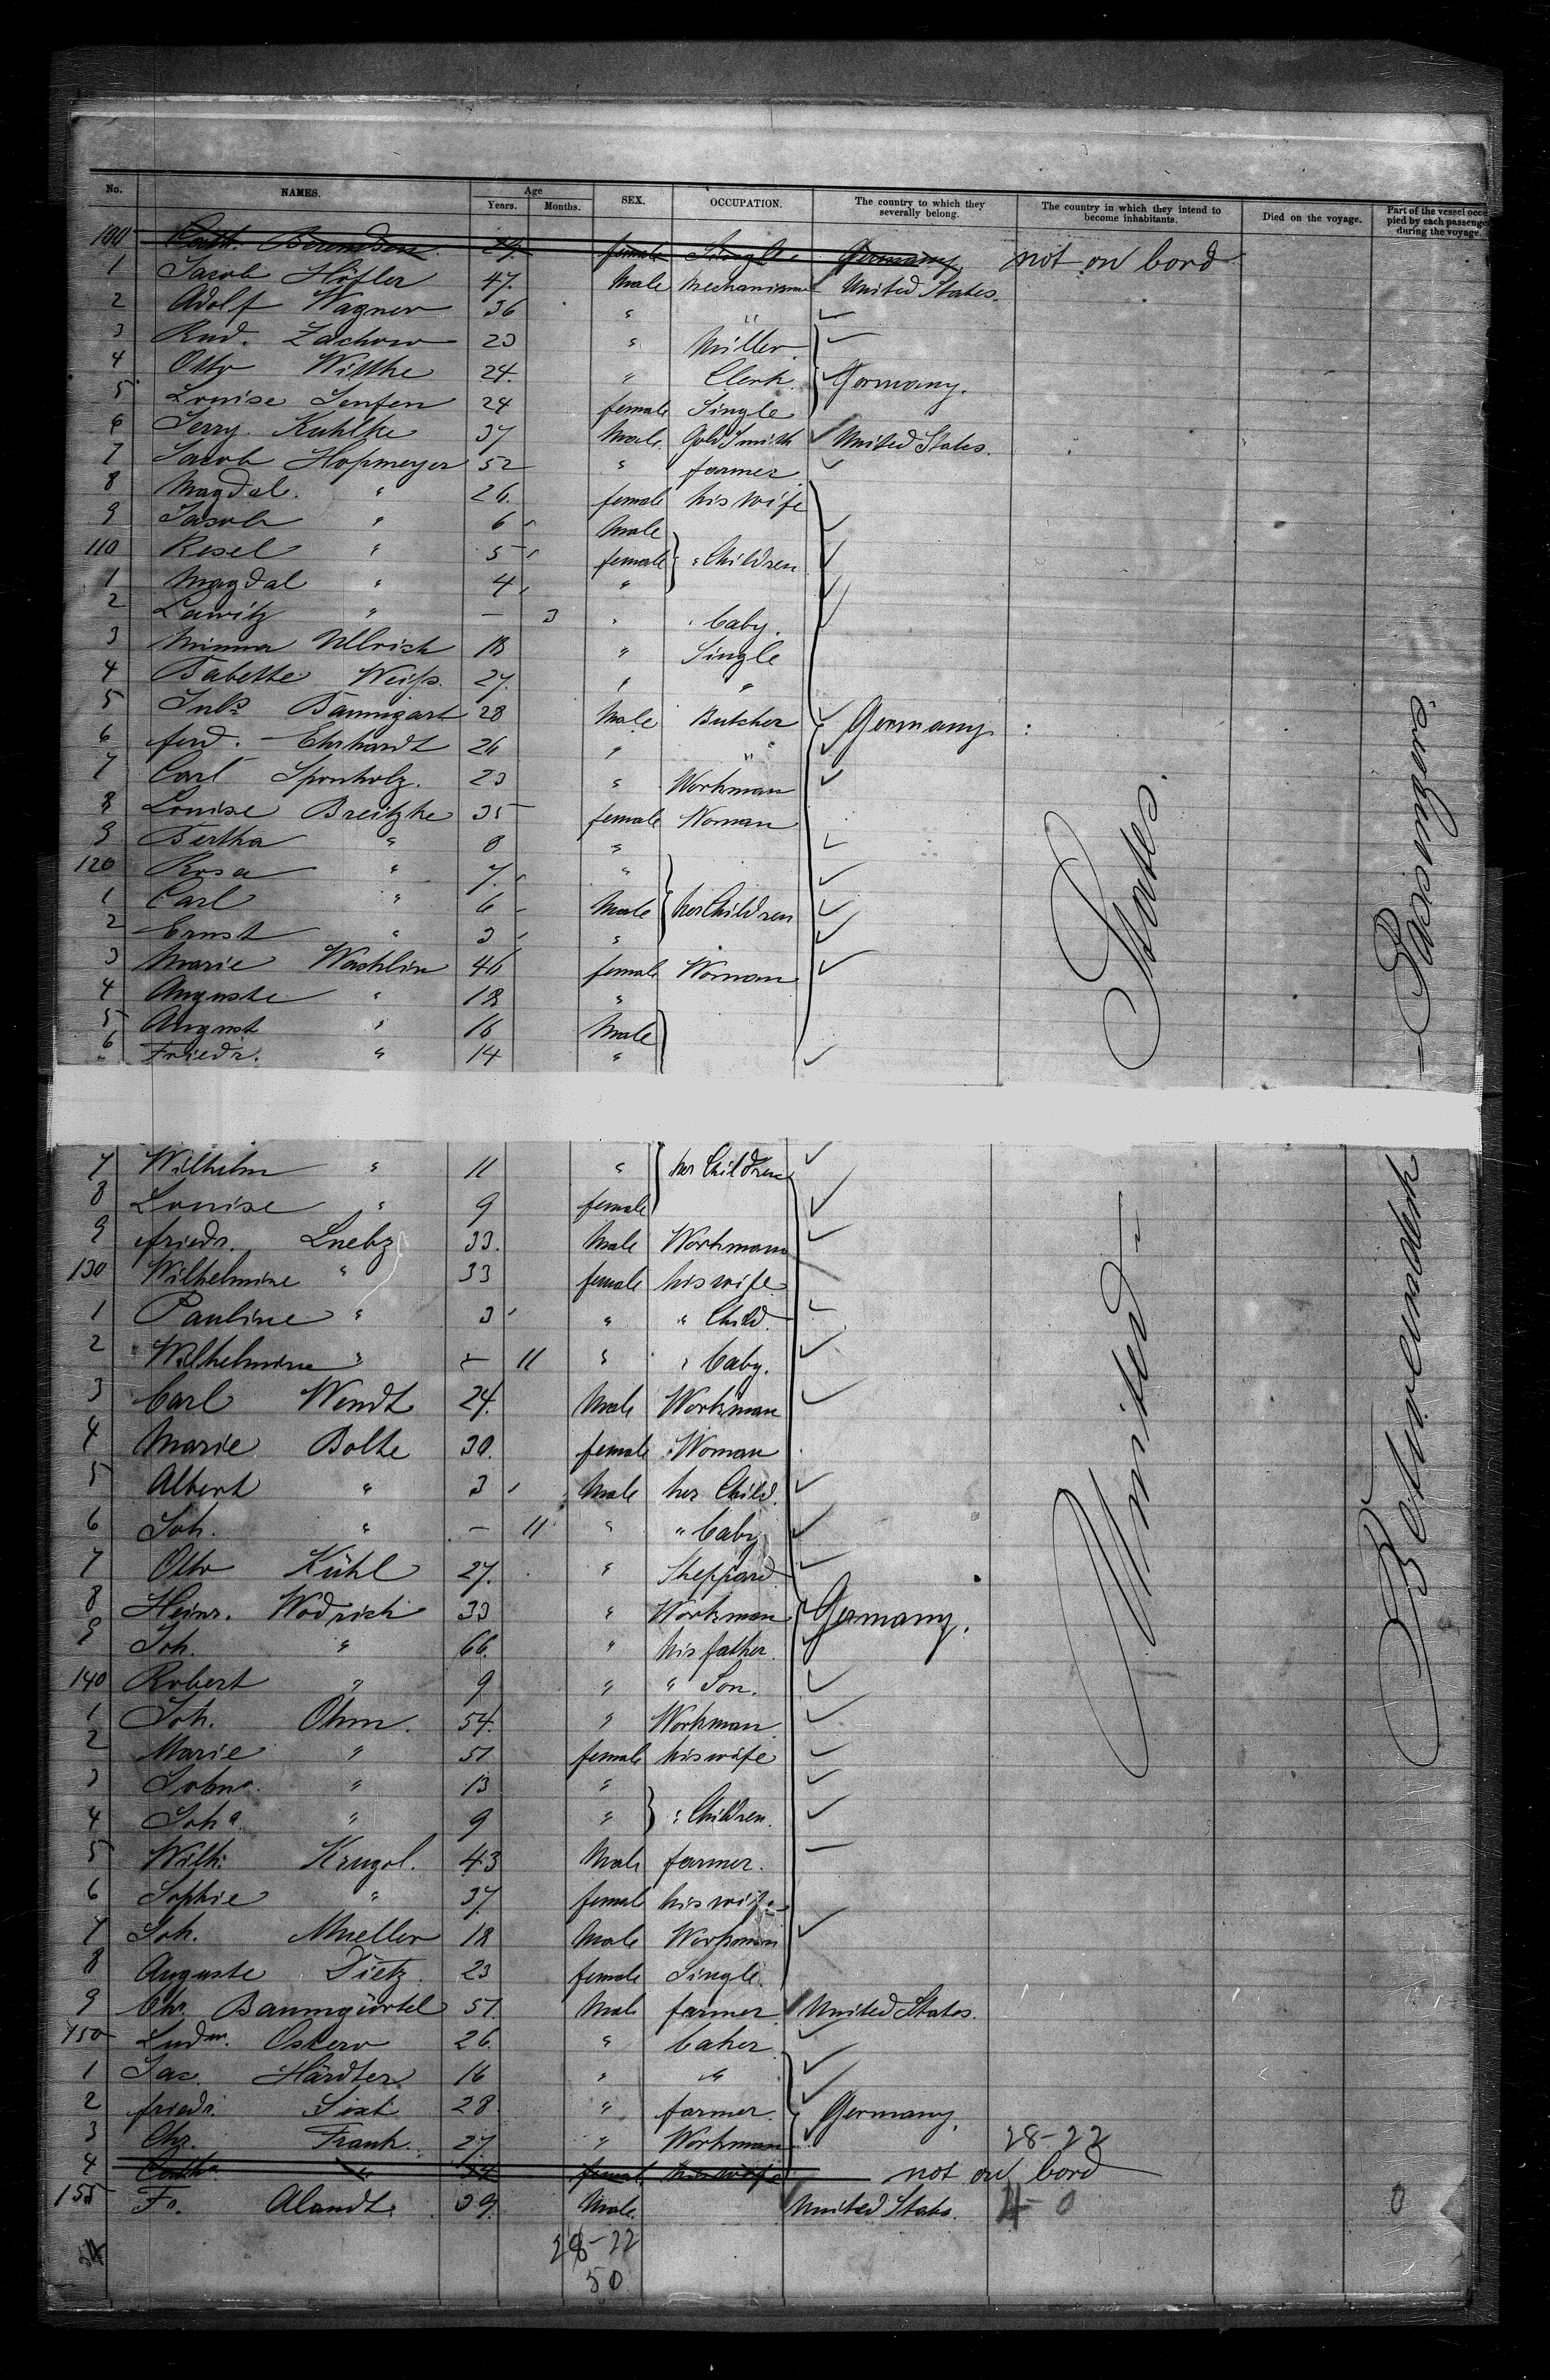 No. NAMES. Age Years. Months. SEX. OCCUPATION. The country to which they severally belong. The country in which they intend to become inhabitants. Died on the voyage. Part of the vessel occupied by each passenger during the voyage.
100 female Single Germany not on bord
1 Jacob Höfler 47. Male Mechaniam United States.
2 Adolf Wagner 36 " "
3 Rud. Zachow 23 " Müller
4 Otto Witthe 24. " Clerk Germany.
5 Louise Senfen 24 female Single
6 Jerry Kuhlke 37 Male Gold Smith United States.
7 Jacob Hopmeyer 52 " farmer
8 Magdal. " 26. female his wife
9 Jacob " 6 Male
110 Resel " 5 female " Children
1 Magdal " 4 "
2 " — 3 " " baby.
3 Minna Ullrich 18 " Single
4 Babette Weiss. 27. " "
5 Juls Baumgart 28 Male Butcher Germany
6 ferd. Ehrhardt 26 " "
7 Carl Sponholz. 23 " Workman
8 Louise Breitzke 35 female Woman
9 Bertha " 8 "
120 Rosa " 7. "
1 Carl " 6 Male her Children
2 Ernst " 3 "
3 Marie Wachlin 46 female Woman
4 Auguste " 18 "
5 August " 16 Male
6 Friedr. " 14 "
7 Wilhelm " 11 " her Children
8 Louise " 9 female
9 friedr. Luebz 33. Male Workman
130 Wilhelmine " 33 female his wife
1 Pauline " 3 " " Child
2 Wilhelmine " — 11 " " baby.
3 Carl Wendt 24. Male Workman
4 Marie Bolte 30. female Woman
5 Albert " 3 Male her Child.
6 Joh. " — 11 " " baby
7 Otto Kühl 27. " Sheppard
8 Heinr. Wodrich 33 " Workman Germany.
9 Joh. " 66. " his father
140 Robert " 9 " " Son.
1 Joh. Ohm. 54. " Workman
2 Marie " 51 female his wife
3 " 13 "
4 Joha " 9 " " Children.
5 Wilh. Krugel. 43 Male farmer.
6 Sophie " 37 female his wife
7 Joh. Mueller 18 Male Workman
8 Auguste Dietz 23 female Single
9 Chr. Baumgärtel 51 Male farmer United States.
150 Ludw. Ostero 26. " baker
1 Jac. Härdter 16 " "
2 friedr. Sixt 28 " farmer. Germany.
3 Chr. Frank. 27. " Workman 28-22
4 " female his wife not on bord
155 Fr. Alandt. 39. Male. United States. 4-0 0
28-22
50
United States
Passengers